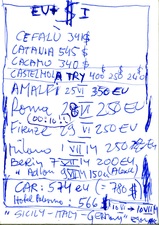 EV+ $ I
CEFALÙ 34$
CATANIA 545$
CACAMO 340$
CASTELMOLA TRY 400 250 240
AMALFI 25 VI 350 EU
Roma 28 250 EU
FIRENZE 29 VI 250 EU
Milano 1 VII 14 250 EU
Berlin 7 VII 14 200 EU
" Adlon 9 VII 14 150
CAR: 574 eu (= 780 $
Hotel Palermo: 566 $
" SICILY - ITALY - GERMANY "